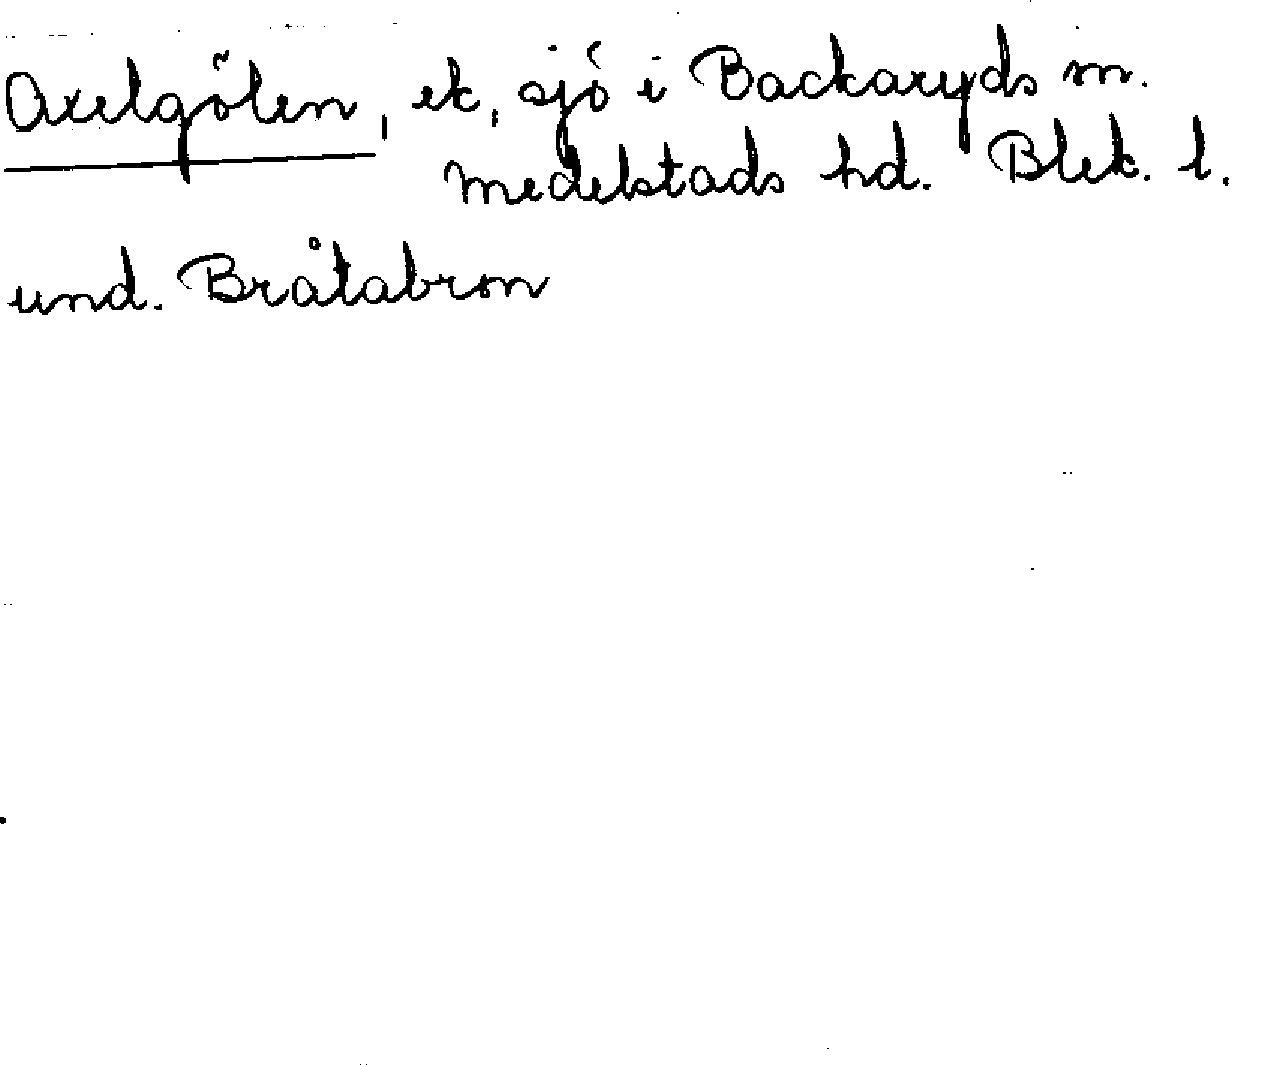 Axelgölen, ek, sjö i Backaryds sn.
Medelstads hd. Blek. l.
und. Bråtabron